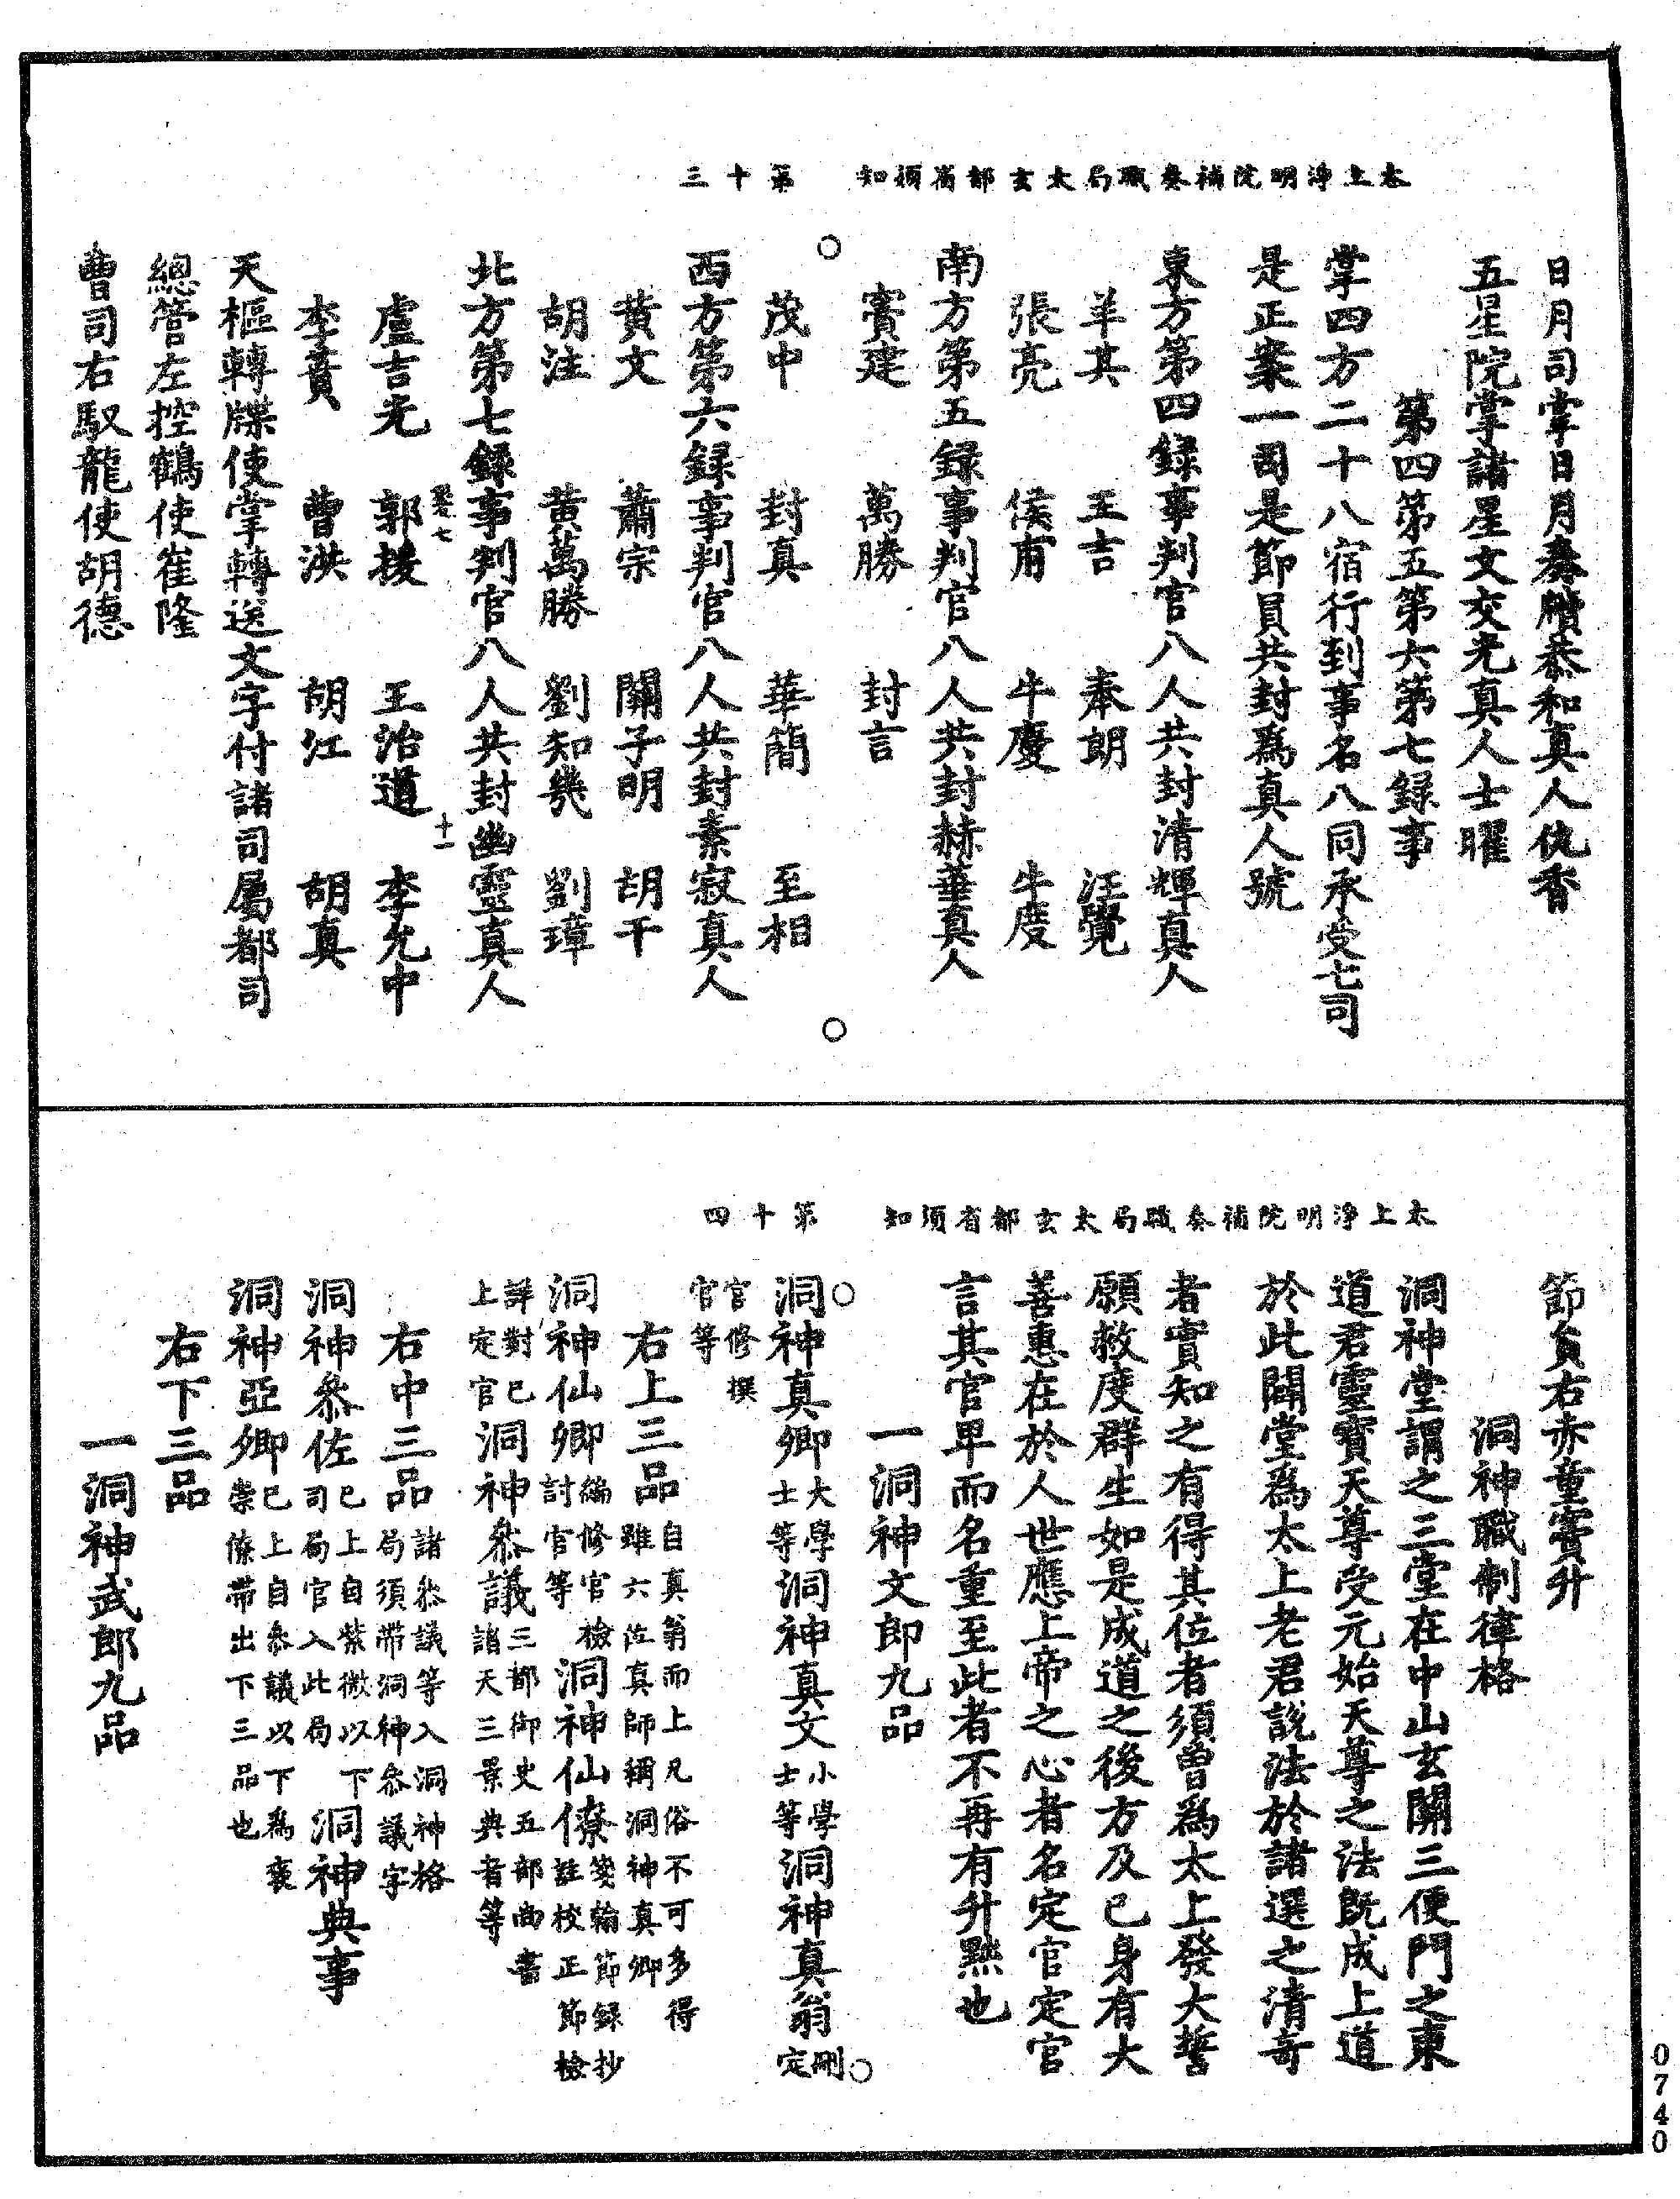 太上淨明院補奏職局太玄都省須知　第十三
日月司掌日月奏牘恭和真人仇香
五星院掌諸星文交光真人士曜
第四第五第六第七録事
掌四方二十八宿行到事名八同承受七司
是正案一司是節員共封爲真人號
東方第四録事判官八人共封清輝真人
羊其　王吉　奉朗　汪覺
張亮　侯甫　牛慶　牛度
南方第五録事判官八人共封赫華真人
賓建　萬勝　封言
茂中　封真　華簡　至相
西方第六録事判官八人共封素寂真人
黄文　蕭宗　關子明　胡干
胡注　黄萬勝　劉知幾　劉璋
北方第七録事判官八人共封幽靈真人
盧吉光　郭援　王治道　李允中
李賁　曹洪　胡江　胡真
天樞轉牒使掌轉送文字付諸司屬都司
總管左控鶴使崔隆
曹司右馭龍使胡德
太上淨明院補奏職局太玄都省須知　第十四
節負右赤童賓升
洞神職制律格
洞神堂謂之三堂在中山玄關三便門之東
道君靈寶天尊受元始天尊之法既成上道
於此開堂爲太上老君説法於諸選之清奇
者實知之有得其位者須曾爲太上發大誓
願救度群生如是成道之後方及已身有大
善惠在於人世應上帝之心者名定官定官
言其官卑而名重至此者不再有升黜也
一洞神文郎九品
洞神真卿大學士等洞神真文小學士等洞神真翁刪定
官修撰官等
右上三品自真翁而上凡俗不可多得雖六佐真師稱洞神真卿
洞神仙卿編修官檢討官等洞神仙僚箋翰節録抄註校正節檢
詳對已上定官洞神參議三都御史五部曲書諸天三景典者等
右中三品諸參議等入洞神格局須帶洞神參議字
洞神參佐已上自紫微以下司局官入此局洞神典事
洞神亞卿已上自參議以下爲衮崇僚帶出下三品也
右下三品
一洞神武郎九品
0740